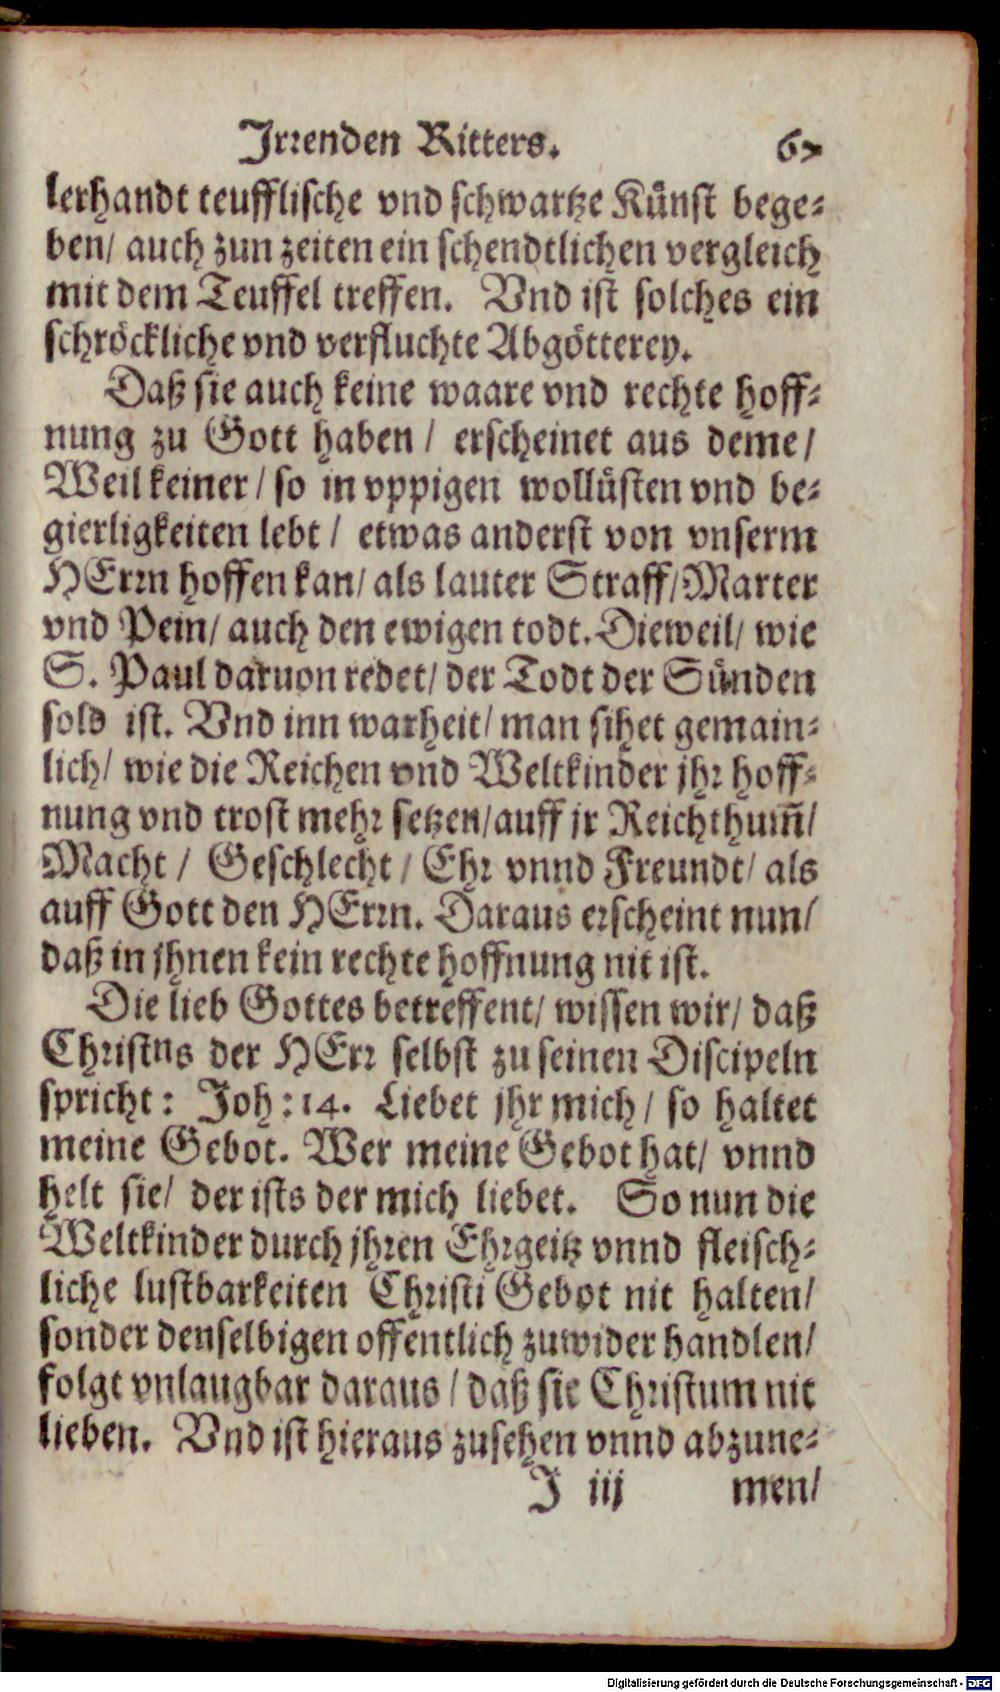 Irrenden Ritters. 67
lerhandt teufflische vnd schwartze Kůnst bege-
ben/ auch zun zeiten ein schendtlichen vergleich
mit dem Teuffel treffen. Vnd ist solches ein
schröckliche vnd verfluchte Abgötterey.
Daß sie auch keine waare vnd rechte hoff-
nung zu Gott haben / erscheinet aus deme/
Weil keiner / so in vppigen wollüsten vnd be-
gierligkeiten lebt / etwas anderst von vnserm
HErrn hoffen kan/ als lauter Straff/ Marter
vnd Pein/ auch den ewigen todt. Dieweil/ wie
S. Paul daruon redet/ der Todt der Sůnden
sold ist. Vnd inn warheit/ man sihet gemain-
lich/ wie die Reichen vnd Weltkinder jhr hoff-
nung vnd trost mehr setzen/auff jr Reichthum̃/
Macht / Geschlecht / Ehr vnnd Freundt/ als
auff Gott den HErrn. Daraus erscheint nun/
daß in jhnen kein rechte hoffnung nit ist.
Die lieb Gottes betreffent/ wissen wir/ daß
Christns der HErr selbst zu seinen Discipeln
spricht: Joh: 14. Liebet jhr mich / so haltet
meine Gebot. Wer meine Gebot hat/ vnnd
helt sie/ der ists der mich liebet. So nun die
Weltkinder durch jhren Ehrgeitz vnnd fleisch-
liche lustbarkeiten Christi Gebot nit halten/
sonder denselbigen offentlich zuwider handlen/
folgt vnlaugbar daraus / daß sie Christum nit
lieben. Vnd ist hieraus zusehen vnnd abzune-
J iij men/
Digitalisierung gefördert durch die Deutsche Forschungsgemeinschaft - DFG